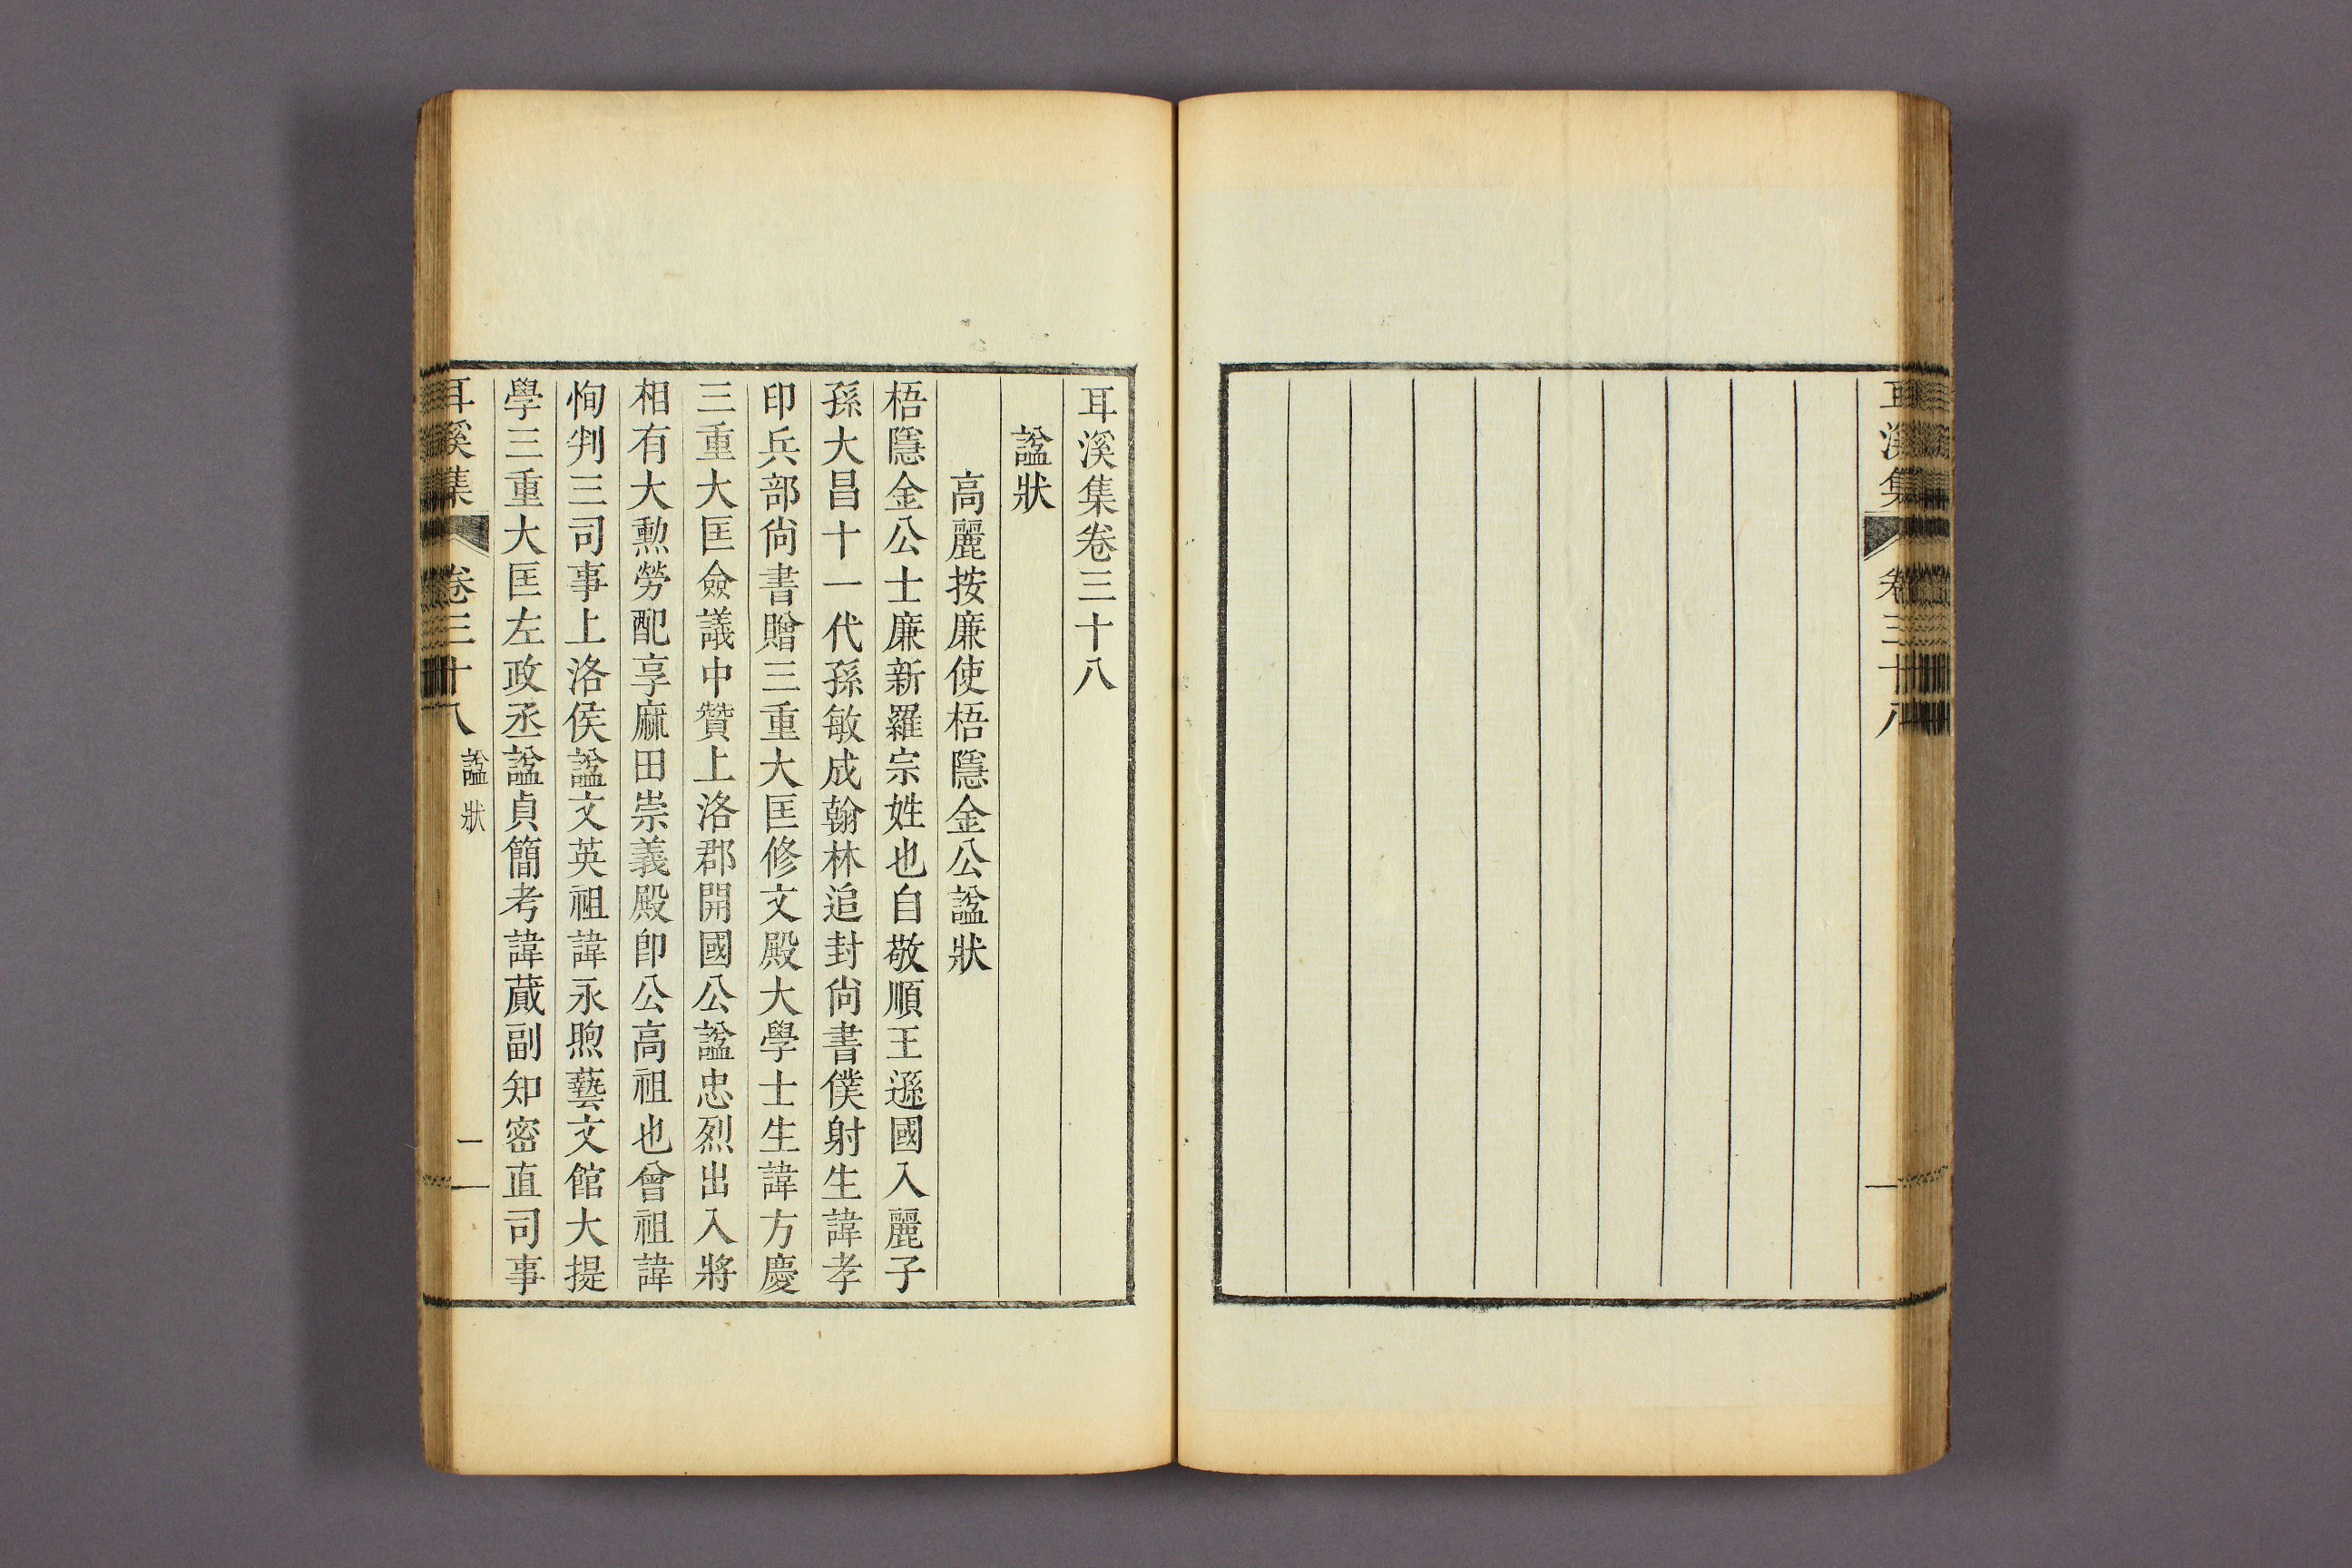 耳溪集
卷三十八
一
耳溪集卷三十八
諡狀
高麗按廉使梧隱金公諡狀
梧隱金公士廉新羅宗姓也自敬順王遜國入麗子
孫大昌十一代孫敏成翰林追封尙書僕射生諱孝
印兵部尙書贈三重大匡修文殿大學士生諱方慶
三重大匡僉議中贊上洛郡開國公諡忠烈出入將
相有大勳勞配享麻田崇義殿卽公高祖也曾祖諱
恂判三司事上洛侯諡文英祖諱永煦藝文館大提
學三重大匡左政丞諡貞簡考諱蕆副知密直司事
耳溪集
卷三十八
諡狀
二
一